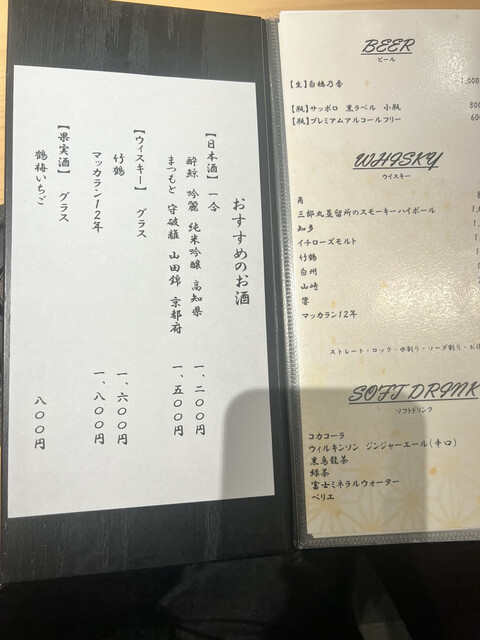 おすすめのお酒
【日本酒】一合
酔鯨 吟麗 純米吟醸 高知県 一、二〇〇円
まつもと 守破離 山田錦 京都府 一、五〇〇円
【ウィスキー】 グラス
竹鶴 一、六〇〇円
マッカラン12年 一、八〇〇円
【果実酒】 グラス
鶴梅いちご 八〇〇円
BEER
ビール
【生】白穂乃香 1,000
【瓶】サッポロ 黒ラベル 小瓶 800
【瓶】プレミアムアルコールフリー 600
WHISKY
ウイスキー
角
三郎丸蒸留所のスモーキーハイボール
知多
イチローズモルト
竹鶴
白州
山崎
響
マッカラン12年
ストレート・ロック・水割り・ソーダ割り・お湯
SOFT DRINK
ソフトドリンク
コカコーラ
ウィルキンソン ジンジャーエール(辛口)
黒烏龍茶
緑茶
富士ミネラルウォーター
ペリエ